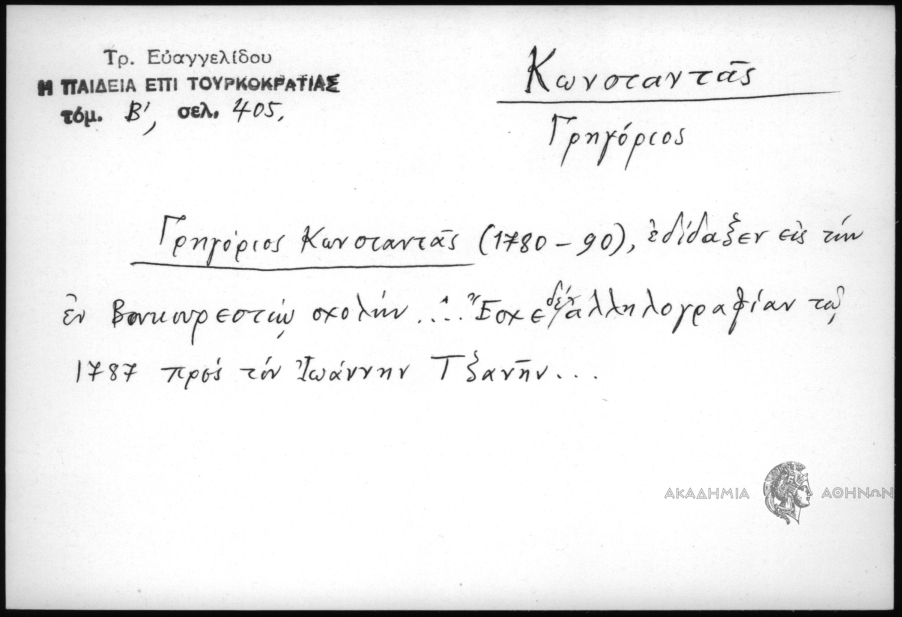 Τρ. Εὐαγγελίδου
Η ΠΑΙΔΕΙΑ ΕΠΙ ΤΟΥΡΚΟΚΡΑΤΙΑΣ
τόμ. Β', σελ. 405.
Κωνσταντᾶς
Γρηγόριος
Γρηγόριος Κωνσταντᾶς (1780-90), ἐδίδαξεν εἰς τὴν
ἐν Βουκουρεστίῳ σχολήν .... Ἔσχε δὲ ἀλληλογραφίαν τῷ
1787 πρὸς τὸν Ἰωάννην Τζανῆν...
ΑΚΑΔΗΜΙΑ ΑΘΗΝΩΝ